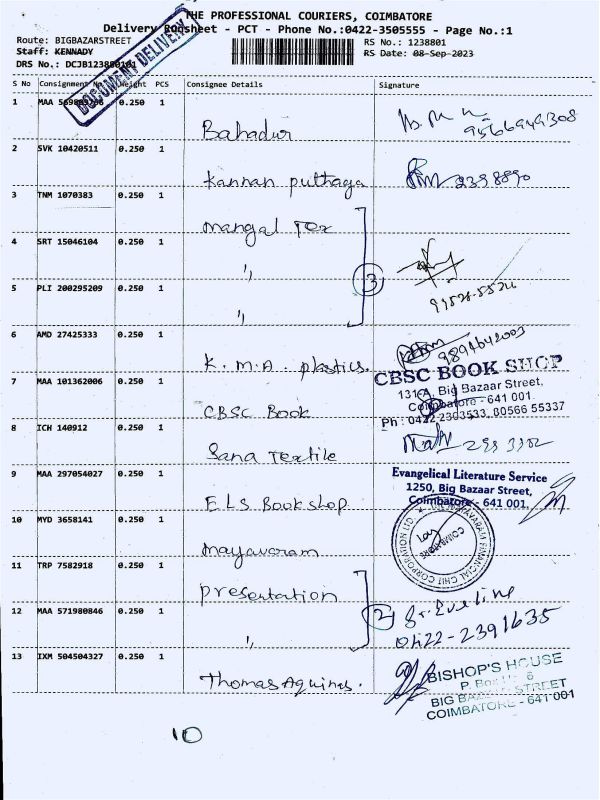 THE PROFESSIONAL COURIERS, COIMBATORE
Delivery Runsheet - PCT - Phone No.:0422-3505555 - Page No.:1
Route: BIGBAZARSTREET
RS No.: 1238801
Staff: KENNADY
RS Date: 08-Sep-2023
DRS No.: DCJB1238801
DOCUMENT DELIVERY
S No Consignment No Weight PCS Consignee Details Signature
1 MAA 0.250 1 Bahadur 9566949308
2 SVK 10420511 0.250 1 Kannan puthaga 2398890
3 TNM 1070383 0.250 1 Mangal Tex
4 SRT 15046104 0.250 1 "
3
5 PLI 200295209 0.250 1 "
6 AMD 27425333 0.250 1 K.M.A. plastics.
7 MAA 101362006 0.250 1 CBSC Book
CBSC BOOK SHOP
131, Big Bazaar Street,
Coimbatore - 641 001.
Ph : 0422 2303533, 80566 55337
8 ICH 140912 0.250 1 Sana Textile
9 MAA 297054027 0.250 1 E.L.S Book shop
Evangelical Literature Service
1250, Big Bazaar Street,
Coimbatore - 641 001.
10 MYD 3658141 0.250 1 Mayavaram
MAYAVARAM FINANCIAL CHIT CORPORATION LTD
COIMBATORE
11 TRP 7582918 0.250 1 presentation
2
12 MAA 571980846 0.250 1 "
Sr. Eveline
0422-2391635
13 IXM 504504327 0.250 1 Thomas Aquinas.
BISHOP'S HOUSE
P. Box 6
BIG BAZAAR STREET
COIMBATORE - 641 001
10